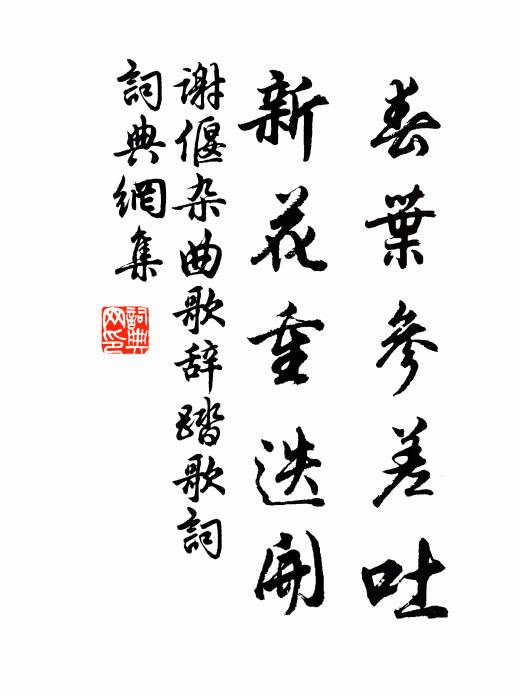 春葉參差吐
新花重迭開
谢偃杂曲歌辞踏歌詞
詞典網集
詞典网印